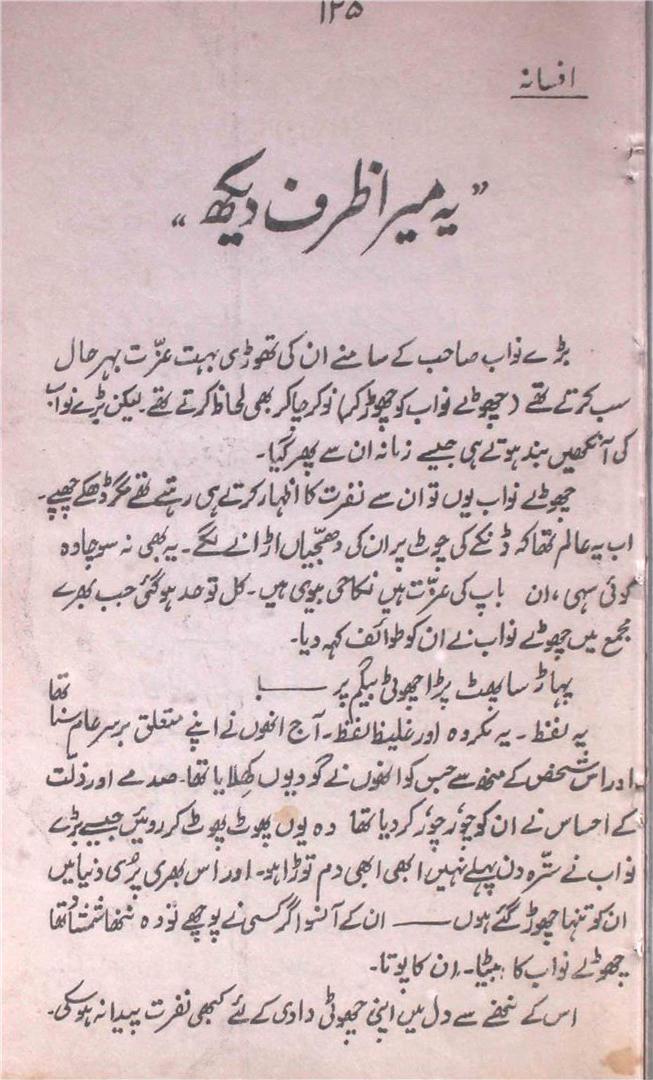 ۱۲۵
افسانہ
"یہ میرا ظرف دیکھ"
بڑے نواب صاحب کے سامنے ان کی تھوڑی بہت عزّت بہر حال
سب کرتے تھے (چھوٹے نواب کو چھوڑ کر) نوکر چاکر بھی لحاظ کرتے تھے۔ لیکن بڑے نواب
کی آنکھیں بند ہوتے ہی جیسے زمانہ ان سے پھر گیا۔
چھوٹے نواب یوں تو ان سے نفرت کا اظہار کرتے ہی رہتے تھے مگر ڈھکے چھپے۔
اب یہ عالم تھا کہ ڈنکے کی چوٹ پر ان کی دھجّیاں اڑانے لگے۔ یہ بھی نہ سوچا وہ
کوئی سہی، ان باپ کی عزّت ہیں نکاحی بیوی ہیں۔ کل تو حد ہو گئی جب بھرے
مجمع میں چھوٹے نواب نے ان کو طوائف کہہ دیا۔
پہاڑ سا پھٹ پڑا چھوٹی بیگم پر ـــــــ!
یہ لفظ۔ یہ مکروہ اور غلیظ لفظ۔ آج انھوں نے اپنے متعلق برسرِعام سنا تھا
اور اس شخص کے منھ سے جس کو انھوں نے گودیوں کھلایا تھا۔ صدمے اور ذلّت
کے احساس نے ان کو چوٗر چوٗر کر دیا تھا وہ یوں پھوٹ پھوٹ کر روئیں جیسے بڑے
نواب نے سترہ دن پہلے نہیں ابھی ابھی دم توڑا ہو۔ اور اس بھری پُری دنیا میں
ان کو تنہا چھوڑ گئے ہوں ـــــــ ان کے آنسو اگر کسی نے پوچھے تو وہ ننھا شمشاد تھا
چھوٹے نواب کا بیٹا۔ ان کا پوتا۔
اس کے ننھے سے دل میں اپنی چھوٹی دادی کے لئے کبھی نفرت پیدا نہ ہو سکی۔